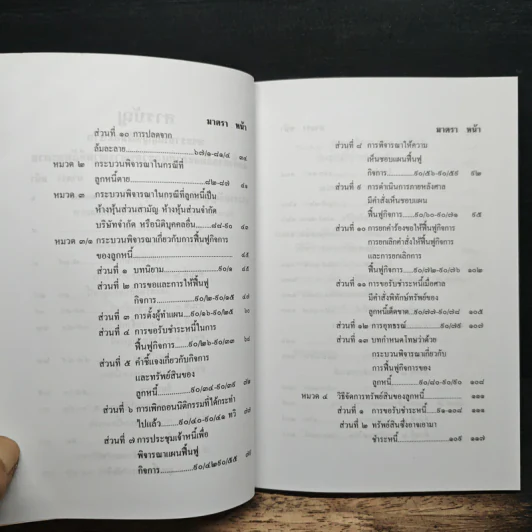 มาตรา หน้า
ส่วนที่ ๑๐ การปลดจาก
ล้มละลาย ๖๗/๑-๘๑/๔ ๓๘
หมวด ๒ กระบวนพิจารณาในกรณีที่
ลูกหนี้ตาย ๘๒-๘๗ ๔๑
หมวด ๓ กระบวนพิจารณาในกรณีที่ลูกหนี้เป็น
ห้างหุ้นส่วนสามัญ ห้างหุ้นส่วนจำกัด
บริษัทจำกัด หรือนิติบุคคลอื่น ๘๘-๙๐
หมวด ๓/๑ กระบวนพิจารณาเกี่ยวกับการฟื้นฟูกิจการ
ของลูกหนี้
ส่วนที่ ๑ บทนิยาม ๙๐/๑
ส่วนที่ ๒ การขอและการให้ฟื้นฟู
กิจการ ๙๐/๒-๙๐/๑๕
ส่วนที่ ๓ การตั้งผู้ทำแผน ๙๐/๑๖-๙๐/๒๕
ส่วนที่ ๔ การขอรับชำระหนี้ในการ
ฟื้นฟูกิจการ ๙๐/๒๖-๙๐/๓๓
ส่วนที่ ๕ คำชี้แจงเกี่ยวกับกิจการ
และทรัพย์สินของ
ลูกหนี้ ๙๐/๓๔-๙๐/๓๙
ส่วนที่ ๖ การเพิกถอนนิติกรรมที่ได้กระทำ
ไปแล้ว ๙๐/๔๐-๙๐/๔๑ ทวิ
ส่วนที่ ๗ การประชุมเจ้าหนี้เพื่อ
พิจารณาแผนฟื้นฟู
กิจการ ๙๐/๔๒-๙๐/๕๕
มาตรา หน้า
ส่วนที่ ๘ การพิจารณาให้ความ
เห็นชอบแผนฟื้นฟู
กิจการ ๙๐/๕๖-๙๐/๕๙ ๙๒
ส่วนที่ ๙ การดำเนินการภายหลังศาล
มีคำสั่งเห็นชอบแผน
ฟื้นฟูกิจการ ๙๐/๖๐-๙๐/๗๑ ๙๕
ส่วนที่ ๑๐ การยกคำร้องขอให้ฟื้นฟูกิจการ
การยกเลิกคำสั่งให้ฟื้นฟูกิจการ
และการยกเลิกการ
ฟื้นฟูกิจการ ๙๐/๗๒-๙๐/๗๖ ๑๐๒
ส่วนที่ ๑๑ การขอรับชำระหนี้เมื่อศาล
มีคำสั่งพิทักษ์ทรัพย์ของ
ลูกหนี้เด็ดขาด ๙๐/๗๗-๙๐/๗๘ ๑๐๕
ส่วนที่ ๑๒ การอุทธรณ์ ๙๐/๗๙ ๑๐๗
ส่วนที่ ๑๓ บทกำหนดโทษว่าด้วย
กระบวนพิจารณาเกี่ยวกับ
การฟื้นฟูกิจการของ
ลูกหนี้ ๙๐/๘๐-๙๐/๙๐ ๑๐๘
หมวด ๔ วิธีจัดการทรัพย์สินของลูกหนี้ ๑๑๑
ส่วนที่ ๑ การขอรับชำระหนี้ ๙๑-๑๐๘ ๑๑๑
ส่วนที่ ๒ ทรัพย์สินซึ่งอาจเอามา
ชำระหนี้ ๑๐๙ ๑๑๗